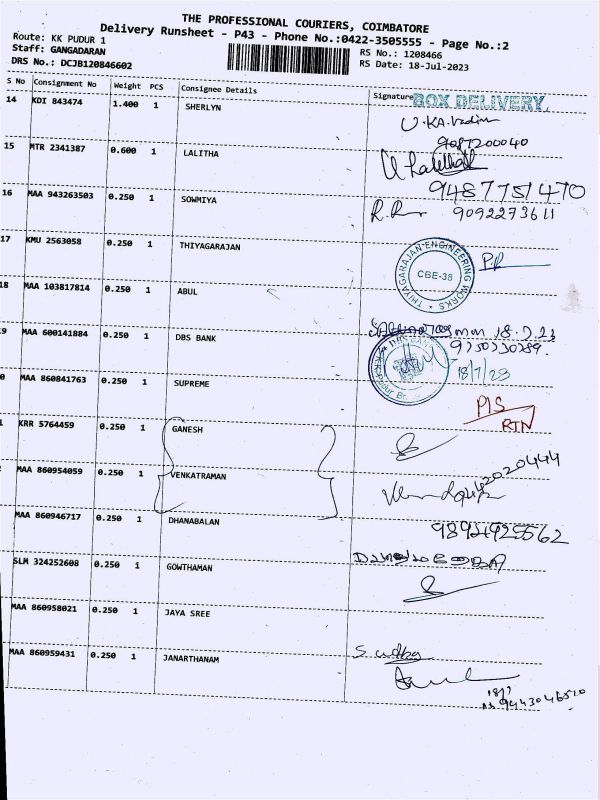 THE PROFESSIONAL COURIERS, COIMBATORE
Delivery Runsheet - P43 - Phone No.:0422-3505555 - Page No.:2
Route: KK PUDUR 1
Staff: GANGADARAN
RS No.: 1208466
DRS No.: DCJB120846602
RS Date: 18-Jul-2023
S No Consignment No Weight PCS Consignee Details Signature
BOX DELIVERY
14 KDI 843474 1.400 1 SHERLYN
9087200040
15 MTR 2341387 0.600 1 LALITHA
9487751470
16 MAA 943263503 0.250 1 SOWMIYA
R.R 9092273611
17 KMU 2563058 0.250 1 THIYAGARAJAN
THIYAGARAJAN ENGINEERING WORKS
CBE-38
P.R
18 MAA 103817814 0.250 1 ABUL
18.7.23
9 MAA 600141884 0.250 1 DBS BANK
18/7/23
0 MAA 860841763 0.250 1 SUPREME
P/S
RTN
1 KRR 5764459 0.250 1 GANESH
MAA 860954059 0.250 1 VENKATRAMAN
MAA 860946717 0.250 1 DHANABALAN
SLM 324252608 0.250 1 GOWTHAMAN
MAA 860958021 0.250 1 JAYA SREE
MAA 860959431 0.250 1 JANARTHANAM
S. sudha
18/7
9443046510